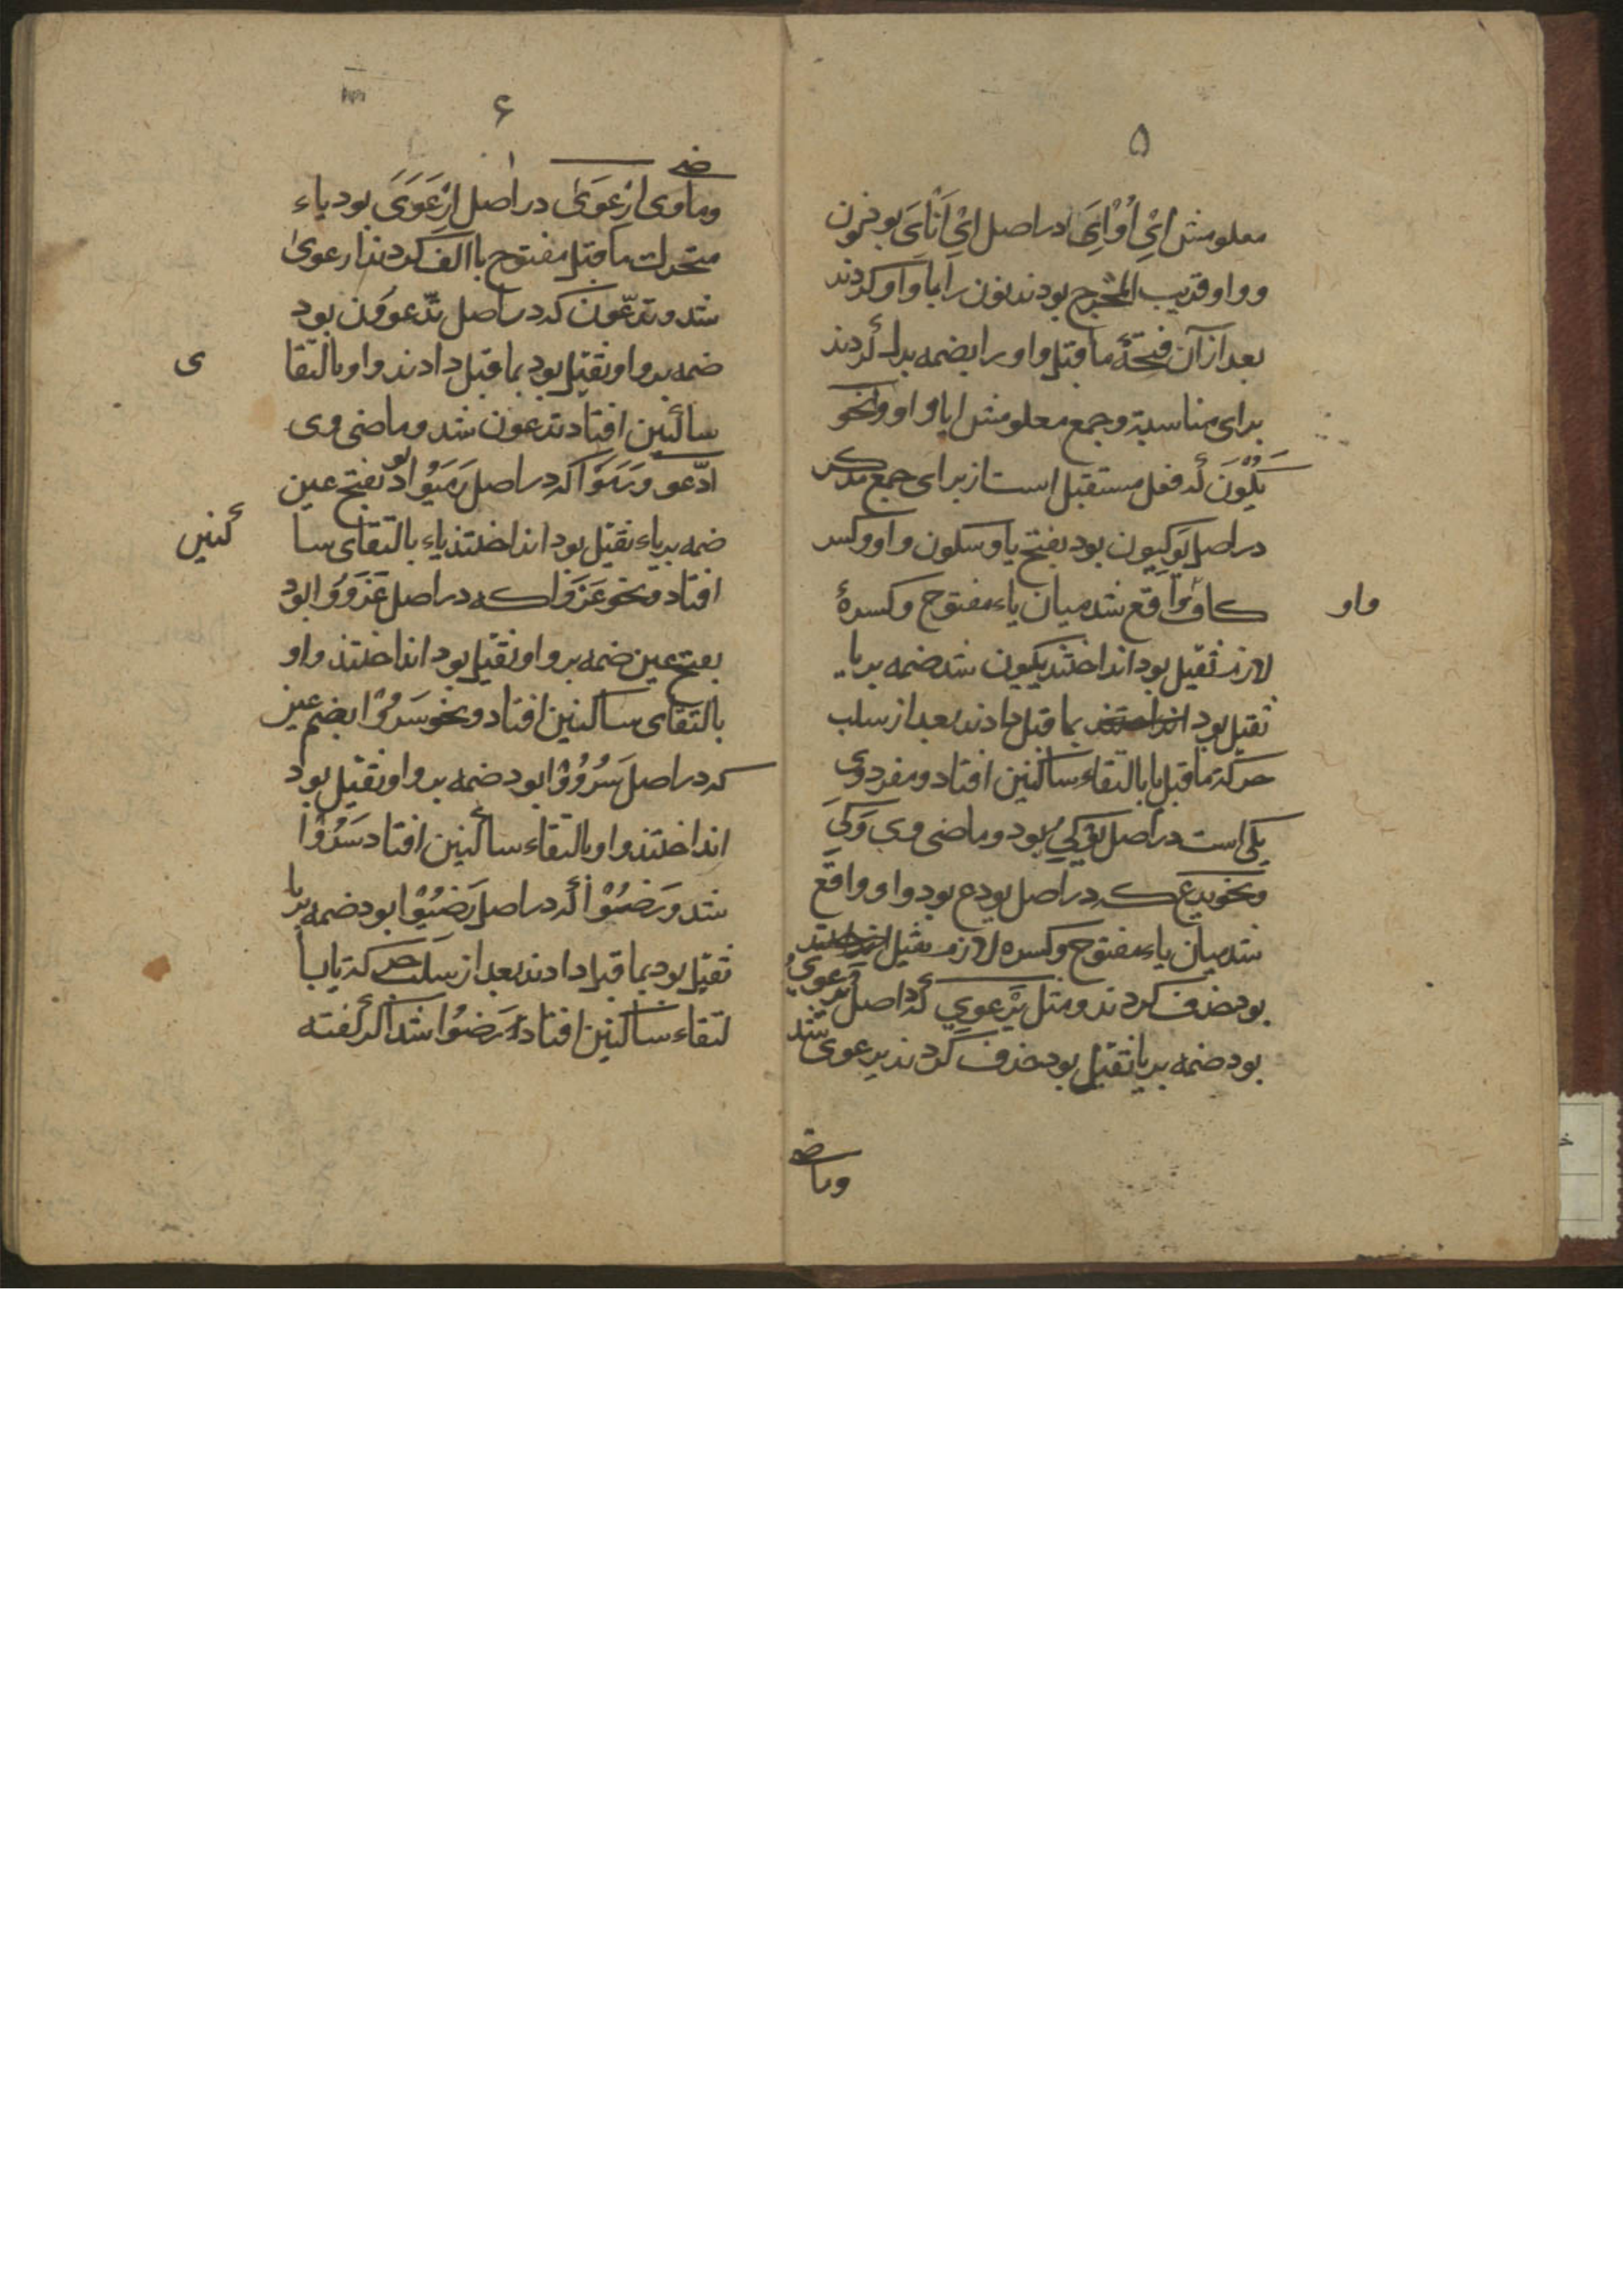 ۵
معلومش اِيْ اُوْاِيَ دراصل اِيْ اَنْاِيَ بود نون
و واو قریب المخرج بودند نون را با واو کردند
بعد از آن فتحهٔ ماقبل واو را بضمه بدل کردند
برای مناسبة و جمع معلومش ایا واو و نحو
یَکُوْنَ که فعل مستقبل است از برای جمع مذکر
دراصل یَوکیون بود بفتح یا و سکون واو و کسر
کاف واو واقع شد میان یاء مفتوح و کسرهٔ
لازم ثقیل بود انداختند یکیون شد ضمه بر یا
ثقیل بود بما قبل دادند بعد از سلب
حرکة ماقبل یا بالتقاء ساکنین افتاد و مفرد وی
یکی است دراصل یَوْکِيُ بود و ماضی وی وَکَيَ
و نحو یدع که دراصل یودع بود واو واقع
شد میان یاء مفتوح و کسره لازم ثقیل
بود حذف کردند و مثل یَرْعوِي که دراصل یرعويُ
بود ضمه بر یا ثقیل بود حذف کردند یرعوی شد
وماضے
۶
وماضے وی اِرْعَوَیٰ دراصل اِرْعَوَيَ بود یاء
متحرک ماقبل مفتوح با الف کردند ارعویٰ
شد و تدّعون که دراصل تدّعوُوْن بود
ضمه بر واو ثقیل بود بما قبل دادند واو بالتقا ی
ساکنین افتاد تدعون شد و ماضی وی
ادّعو و رَمَوْا که دراصل رَمَیُوْا بود بفتح عین
ضمه بر یاء ثقیل بود انداختند یاء بالتقای سا کنین
افتاد و نحو غَزَوْا که دراصل غَزَوُوْا بود
بفتح عین ضمه بر واو ثقیل بود انداختند واو
بالتقای ساکنین افتاد و نحو سَرُوْا بضم عین
که دراصل سَرُوُوْا بود ضمه بر واو ثقیل بود
انداختند واو بالتقاء ساکنین افتاد سَرُوْا
شد و رَضُوْا که دراصل رَضِیُوْا بود ضمه بر یا
ثقیل بود بما قبل دادند بعد از سلب حرکة یا با
لتقاء ساکنین افتاد رَضُوْا شد اگر گفته